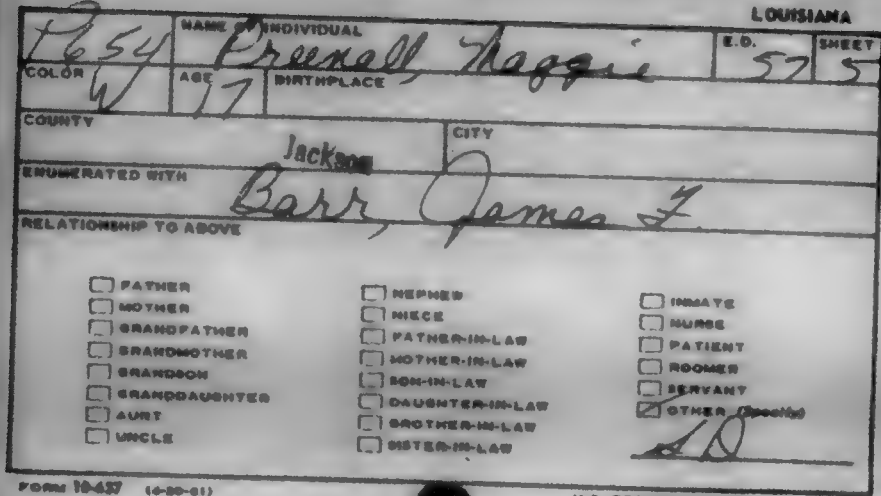 LOUISIANA
P654 NAME OF INDIVIDUAL Preenall, Maggie E.D. 57 SHEET 5
COLOR W AGE 17 BIRTHPLACE
COUNTY Jackson CITY
ENUMERATED WITH Barr, James F.
RELATIONSHIP TO ABOVE
FATHER
MOTHER
GRANDFATHER
GRANDMOTHER
GRANDSON
GRANDDAUGHTER
AUNT
UNCLE
NEPHEW
NIECE
FATHER-IN-LAW
MOTHER-IN-LAW
SON-IN-LAW
DAUGHTER-IN-LAW
BROTHER-IN-LAW
SISTER-IN-LAW
INMATE
NURSE
PATIENT
ROOMER
SERVANT
OTHER (Specify)
SD
FORM 10-637